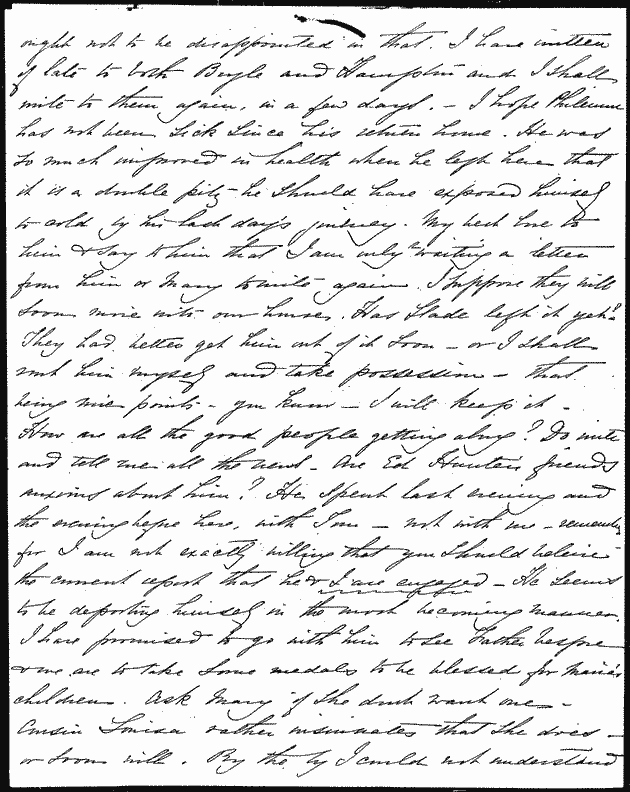 ought not to be disappointed in that. I have written
of late to both Boyle and Hampton and I shall
write to them again, in a few days. – I hope Philemon
has not been sick since his return home. He was
so much improved in health when he left here that
it is a double pity he should have exposed himself
to cold by his last day's journey. My best love to
him & say to him that I am only waiting a letter
from him or Mary to write again. I suppose they will
soon move into our house. Has Slade left it yet?
They had better get him out of it soon – or I shall
rout him myself and take possession – that
being nine points – you know – I will keep it –
How are all the good people getting along? Do write
and tell me all the news – Are Ed Hunter's friends
anxious about him? He spent last evening and
the evening before here, with Tom – not with me – remember
for I am not exactly willing that you should believe
the current report that he & I are engaged – He seems
to be deporting himself in the most becoming manner.
I have promised to go with him to see Father
& we are to take some medals to be blessed for Maria's
children. Ask Mary if she don't want one –
Cousin Louisa rather insinuates that she does –
or soon will. By the by I could not understand